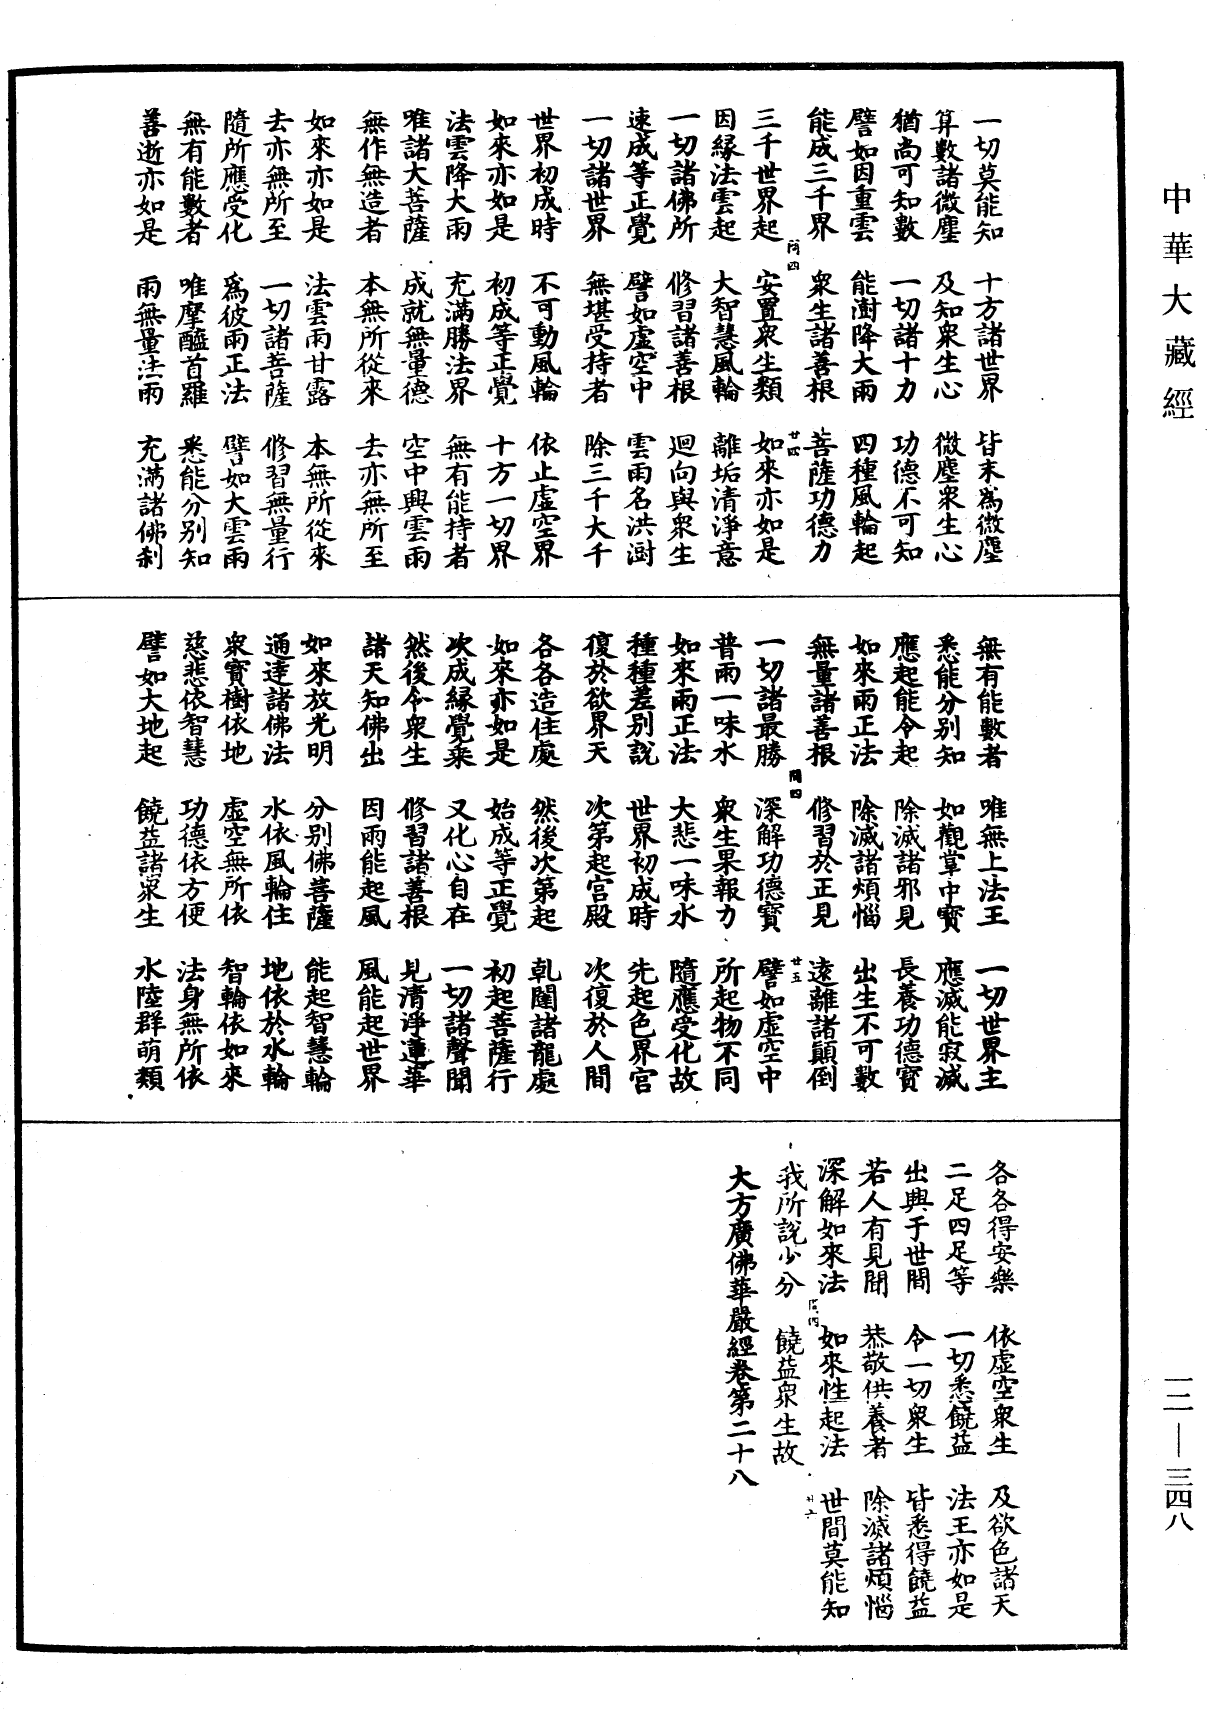 中華大藏經
一切莫能知 十方諸世界 皆末為微塵
算數諸微塵 及知衆生心 微塵衆生心
猶尚可知數 一切諸十力 功德不可知
譬如因重雲 能澍降大雨 四種風輪起
能成三千界 衆生諸善根 菩薩功德力
三千世界起 安置衆生類 如來亦如是
因緣法雲起 大智慧風輪 離垢清淨意
一切諸佛所 修習諸善根 迴向與衆生
速成等正覺 譬如虛空中 雲雨名洪澍
一切諸世界 無堪受持者 除三千大千
世界初成時 不可動風輪 依止虛空界
如來亦如是 初成等正覺 十方一切界
法雲降大雨 充滿勝法界 無有能持者
唯諸大菩薩 成就無量德 空中興雲雨
無作無造者 本無所從來 去亦無所至
如來亦如是 法雲雨甘露 本無所從來
去亦無所至 一切諸菩薩 修習無量行
隨所應受化 為彼雨正法 譬如大雲雨
無有能數者 唯摩醯首羅 悉能分别知
善逝亦如是 雨無量法雨 充滿諸佛刹
無有能數者 唯無上法王 一切世界主
悉能分别知 如觀掌中寶 應滅能寂滅
應起能令起 除滅諸邪見 長養功德寶
如來雨正法 除滅諸煩惱 出生不可數
無量諸善根 修習於正見 遠離諸顛倒
一切諸最勝 深解功德寶 譬如虛空中
普雨一味水 衆生果報力 所起物不同
如來雨正法 大悲一味水 隨應受化故
種種差别說 世界初成時 先起色界宫
復於欲界天 次第起宫殿 次復於人間
各各造住處 然後次第起 乹闥諸龍處
如來亦如是 始成等正覺 初起菩薩行
次成緣覺乘 又化心自在 一切諸聲聞
然後令衆生 修習諸善根 見清淨蓮華
諸天知佛出 因雨能起風 風能起世界
如來放光明 分别佛菩薩 能起智慧輪
通達諸佛法 水依風輪住 地依於水輪
衆寶樹依地 虛空無所依 智輪依如來
慈悲依智慧 功德依方便 法身無所依
譬如大地起 饒益諸衆生 水陸群萌類
各各得安樂 依虛空衆生 及欲色諸天
二足四足等 一切悉饒益 法王亦如是
出興于世間 令一切衆生 皆悉得饒益
若人有見聞 恭敬供養者 除滅諸煩惱
深解如來法 如來性起法 世間莫能知
我所說少分 饒益衆生故
大方廣佛華嚴經卷第二十八
一二—三四八